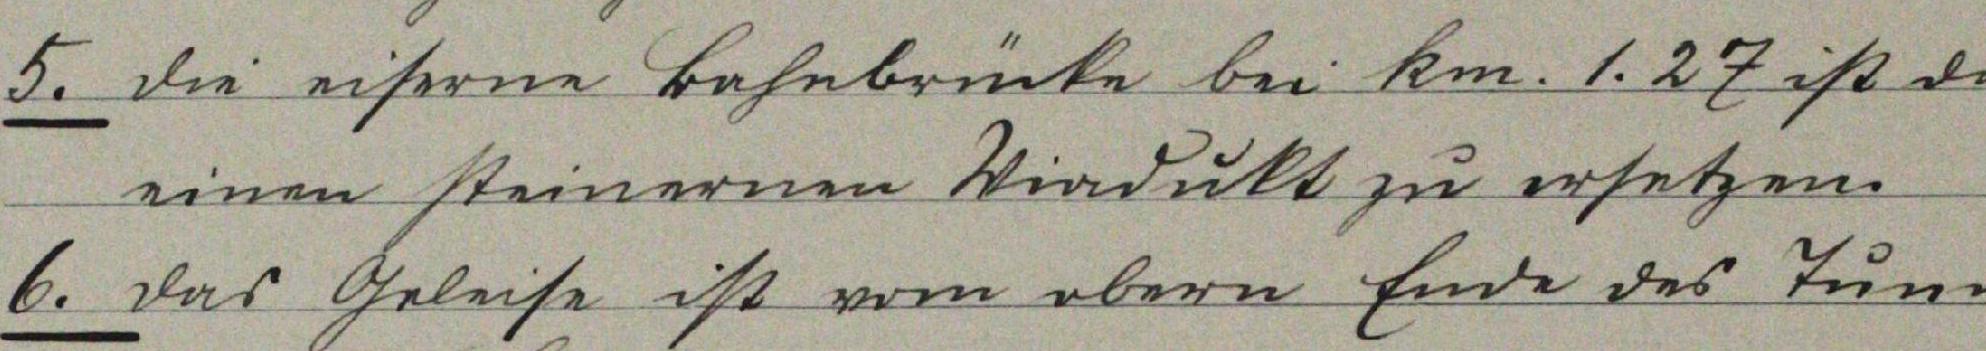 5. die eiserne Bahnbrücke bei km. 1.27 ist d
einen steinernen Viadukt zu ersetzen.
6. das Geleise ist vom obern Ende des Tun